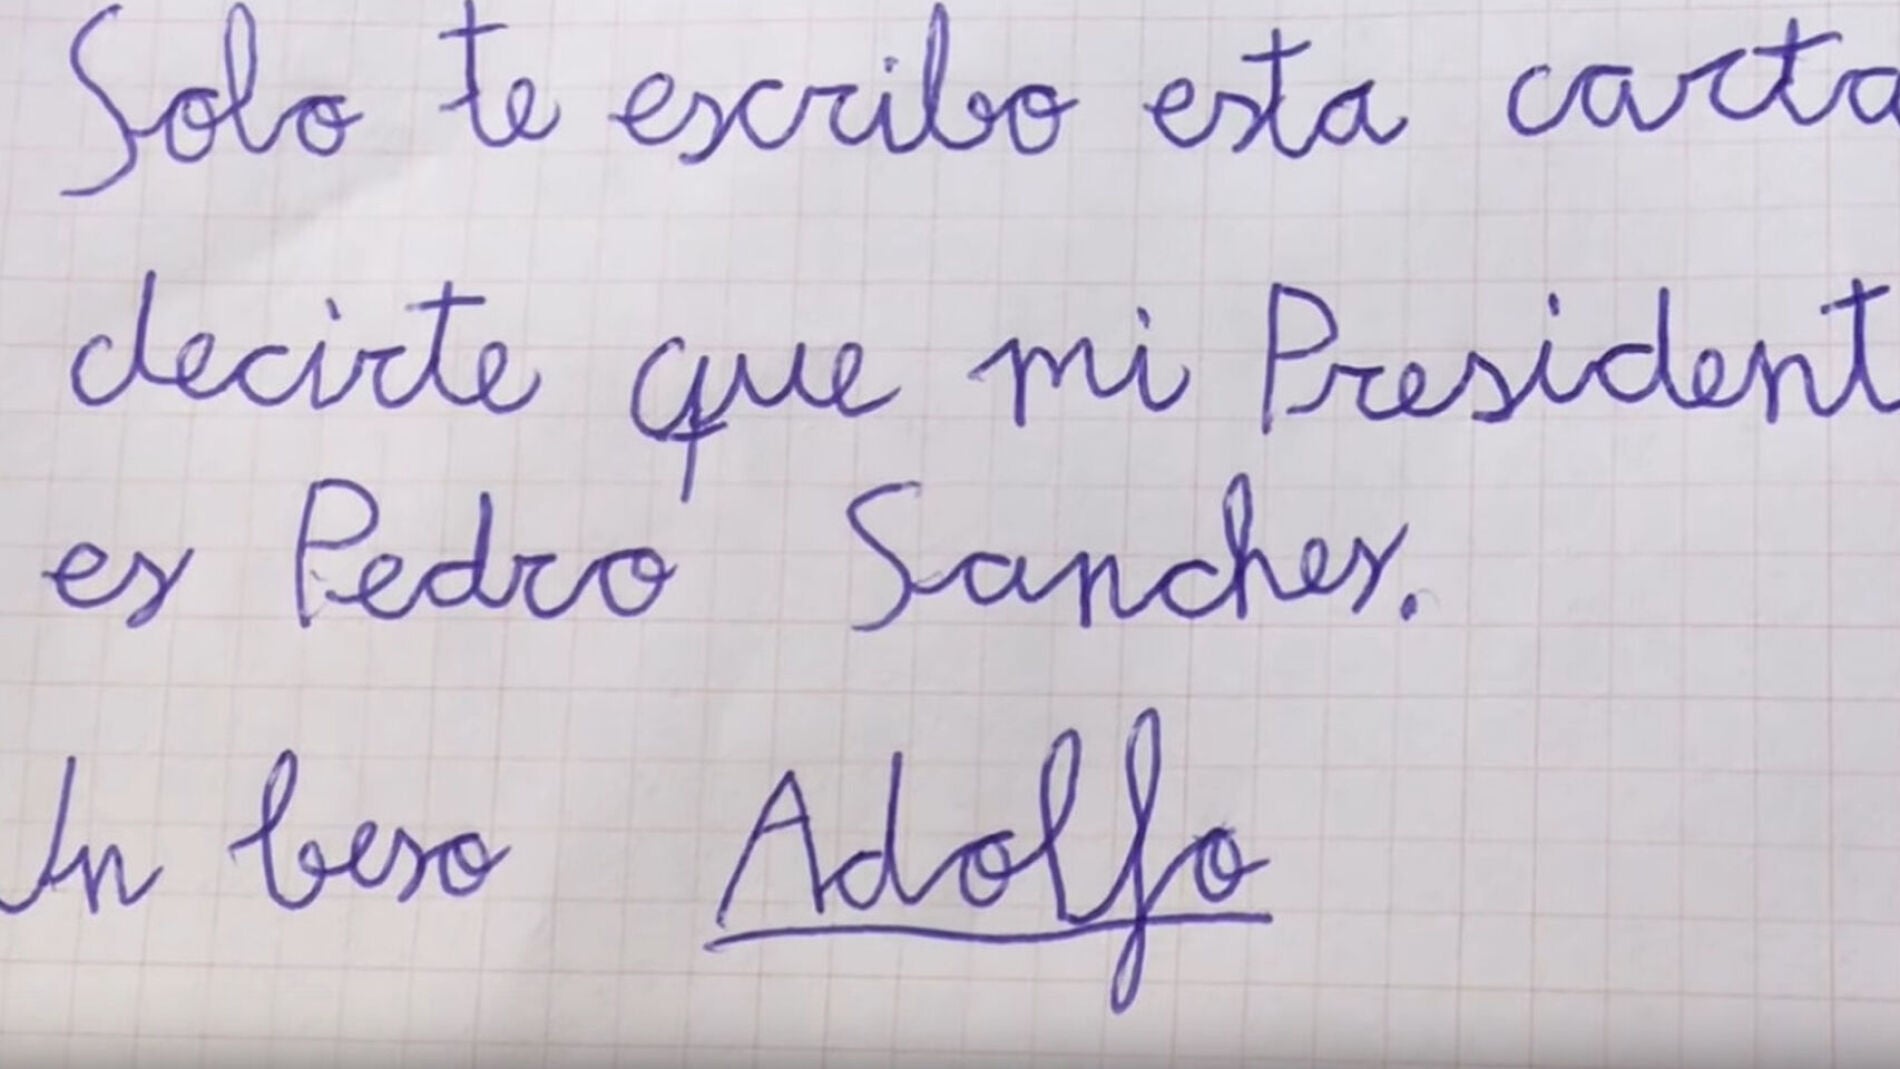 Solo te escribo esta carta
decirte que mi President
es Pedro Sanches.
Un beso Adolfo